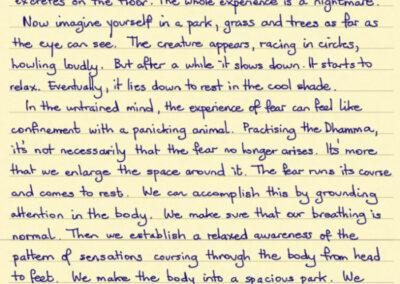 excretes on the floor. The whole experience is a nightmare.
Now imagine yourself in a park, grass and trees as far as
the eye can see. The creature appears, racing in circles,
howling loudly. But after a while it slows down. It starts to
relax. Eventually, it lies down to rest in the cool shade.
In the untrained mind, the experience of fear can feel like
confinement with a panicking animal. Practising the Dhamma,
it's not necessarily that the fear no longer arises. It's more
that we enlarge the space around it. The fear runs its course
and comes to rest. We can accomplish this by grounding
attention in the body. We make sure that our breathing is
normal. Then we establish a relaxed awareness of the
pattern of sensations coursing through the body from head
to feet. We make the body into a spacious park. We